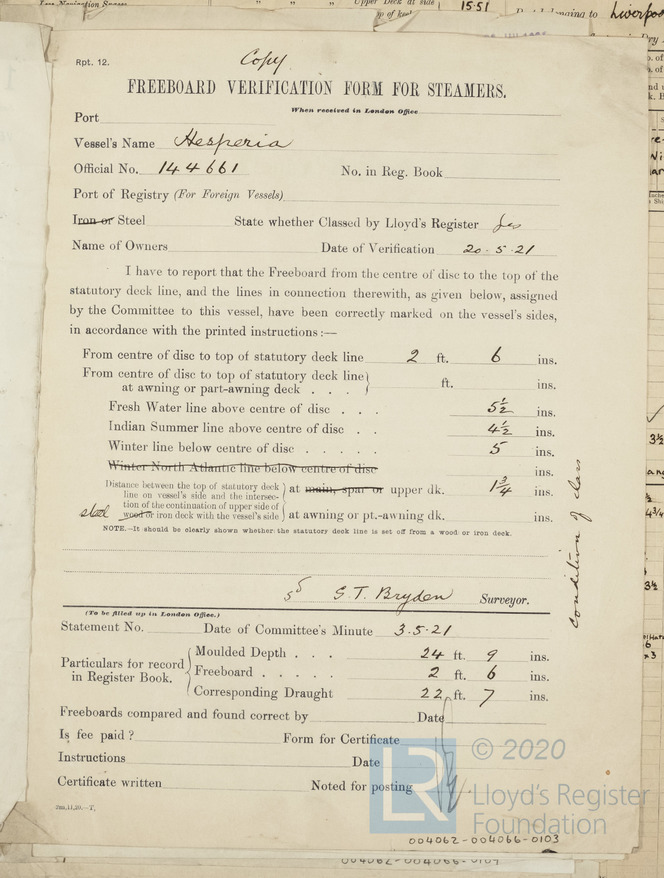 Upper Deck at side 15·51
longing to Liverpoo
Rpt. 12.
Copy
FREEBOARD VERIFICATION FORM FOR STEAMERS.
When received in London Office
Port
Vessel's Name Hesperia
Official No. 144661 No. in Reg. Book
Port of Registry (For Foreign Vessels)
Iron or Steel State whether Classed by Lloyd's Register Yes
Name of Owners Date of Verification 20·5·21
I have to report that the Freeboard from the centre of disc to the top of the
statutory deck line, and the lines in connection therewith, as given below, assigned
by the Committee to this vessel, have been correctly marked on the vessel's sides,
in accordance with the printed instructions:—
From centre of disc to top of statutory deck line 2 ft. 6 ins.
From centre of disc to top of statutory deck line
at awning or part-awning deck . . . ft. ins.
Fresh Water line above centre of disc . . 5½ ins.
Indian Summer line above centre of disc . . 4½ ins.
Winter line below centre of disc . . . . . 5 ins.
Winter North Atlantic line below centre of disc ins.
Distance between the top of statutory deck
line on vessel's side and the intersec- at main, spar or upper dk. 1¾ ins.
tion of the continuation of upper side of
steel wood or iron deck with the vessel's side at awning or pt.-awning dk. ins.
NOTE.—It should be clearly shown whether the statutory deck line is set off from a wood or iron deck.
condition of class
S. T. Bryden Surveyor.
(To be filled up in London Office.)
Statement No. Date of Committee's Minute 3·5·21
Particulars for record in Register Book.
Moulded Depth . . . 24 ft. 9 ins.
Freeboard . . . . . 2 ft. 6 ins.
Corresponding Draught 22 ft. 7 ins.
Freeboards compared and found correct by Date
Is fee paid? Form for Certificate
Instructions Date
Certificate written Noted for posting
2m,11,20.—T.
LR
© 2020
Lloyd's Register
Foundation
004062-004066-0103
004062-004066-0104